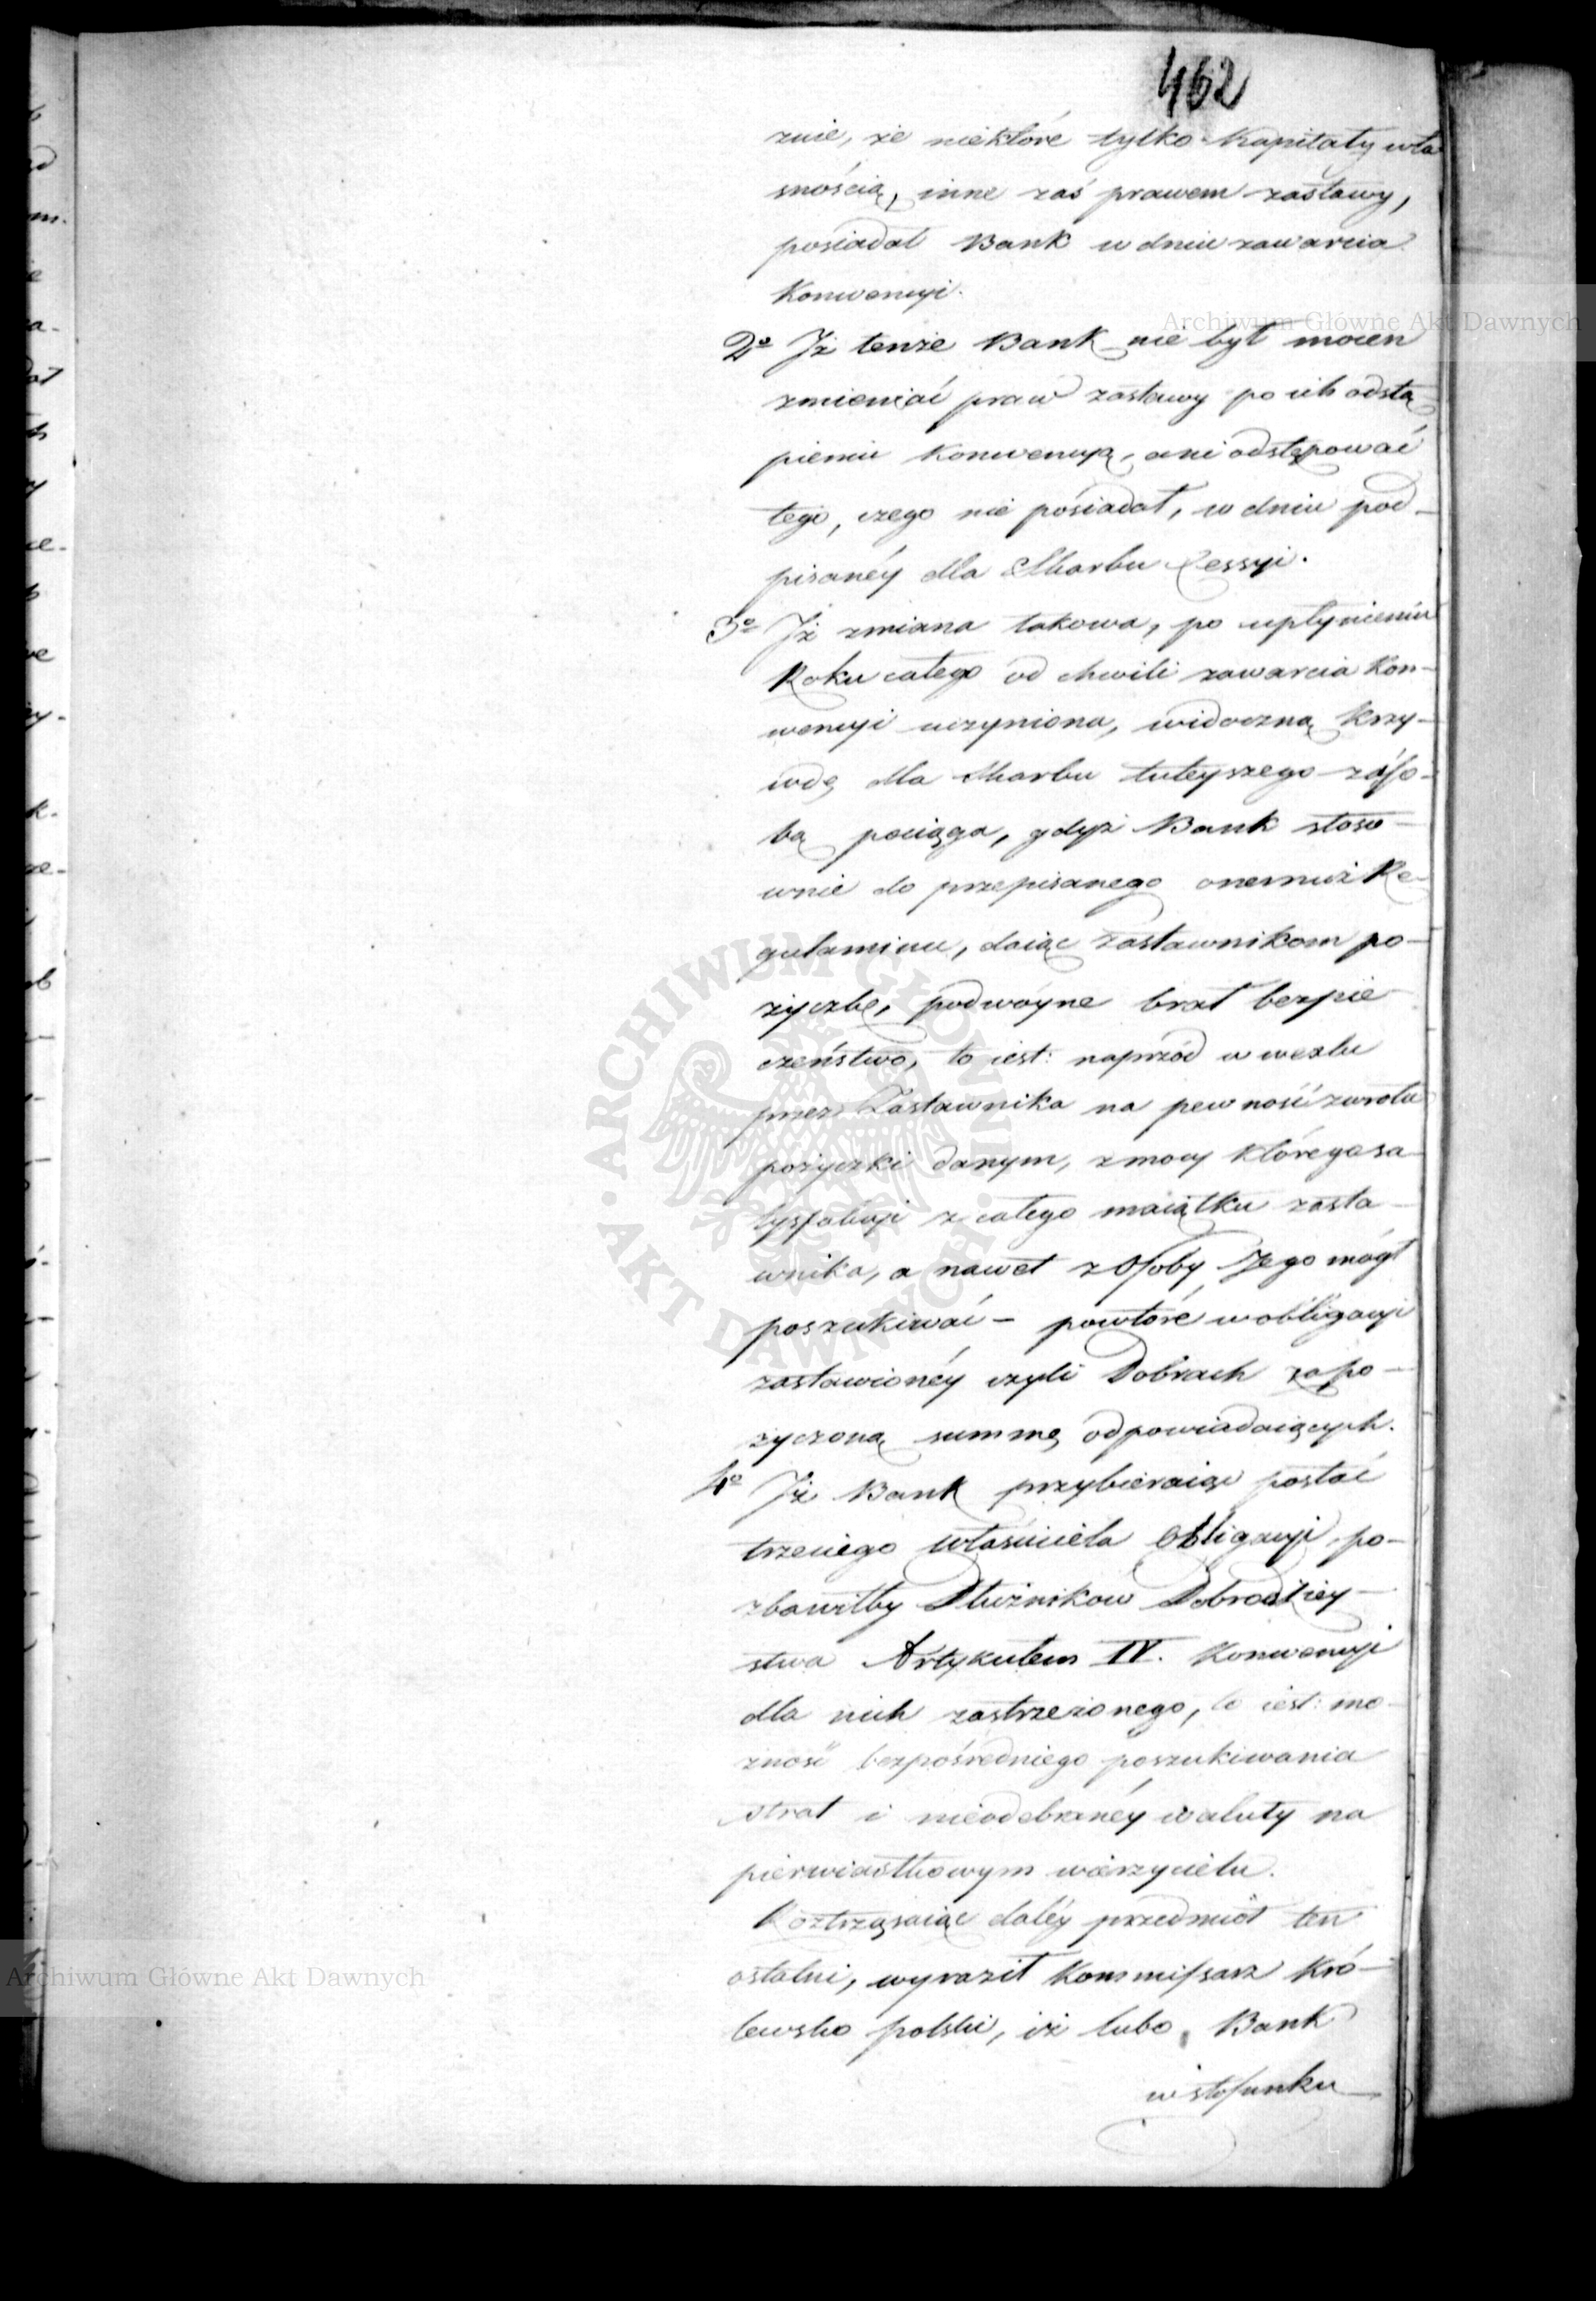 462
znie, że niektóre tylko Kapitały wła
snością, inne zaś prawem zastawy,
posiadał Bank w dniu zawarcia
Konwencyi.
2o Iż tenże Bank nie był mocen
zmieniać praw zastawy po ich odstą
pieniu Konwencyą, ani odstępować
tego, czego nie posiadał, w dniu pod-
pisanéy dla Skarbu Cessyi.
3o Iż zmiana takowa, po upłynieniu
Roku całego od chwili zawarcia Kon-
wencyi uczyniona, widoczną krzy-
wdę dla Skarbu tuteyszego za so-
bą pociąga, gdyż Bank stoso-
wnie do przepisanego onemuż Re-
gulaminu, daiąc zastawnikom po-
życzkę, podwóyne brał bezpie-
czeństwo, to iest: naprzód w wexlu
przez Zastawnika na pewność zwrotu
pożyczki danym, z mocy którego sa-
tysfakcyi z całego maiątku zasta-
wnika, a nawet z Osoby Jego mógł
poszukiwać - powtóre w obligacyi
zastawionéy czyli Dobrach za po-
życzoną summę odpowiadaiących.
4o Iż Bank przybieraiąc postać
trzeciego właściciela Obligacyi po-
zbawiłby Dłużników Dobrodziey-
stwa Artykułem IV. Konwencyi
dla nich zastrzeżonego, to iest: mo-
żność bezpośredniego poszukiwania
strat i nieodebranéy waluty na
pierwiastkowym wierzycielu.
Roztrząsaiąc daléy przedmiot ten
ostatni, wyraził Kommissarz Kró-
lewsko polski, iż lubo Bank
w stosunku
Archiwum Główne Akt Dawnych
ARCHIWUM GŁÓWNE AKT DAWNYCH
Archiwum Główne Akt Dawnych